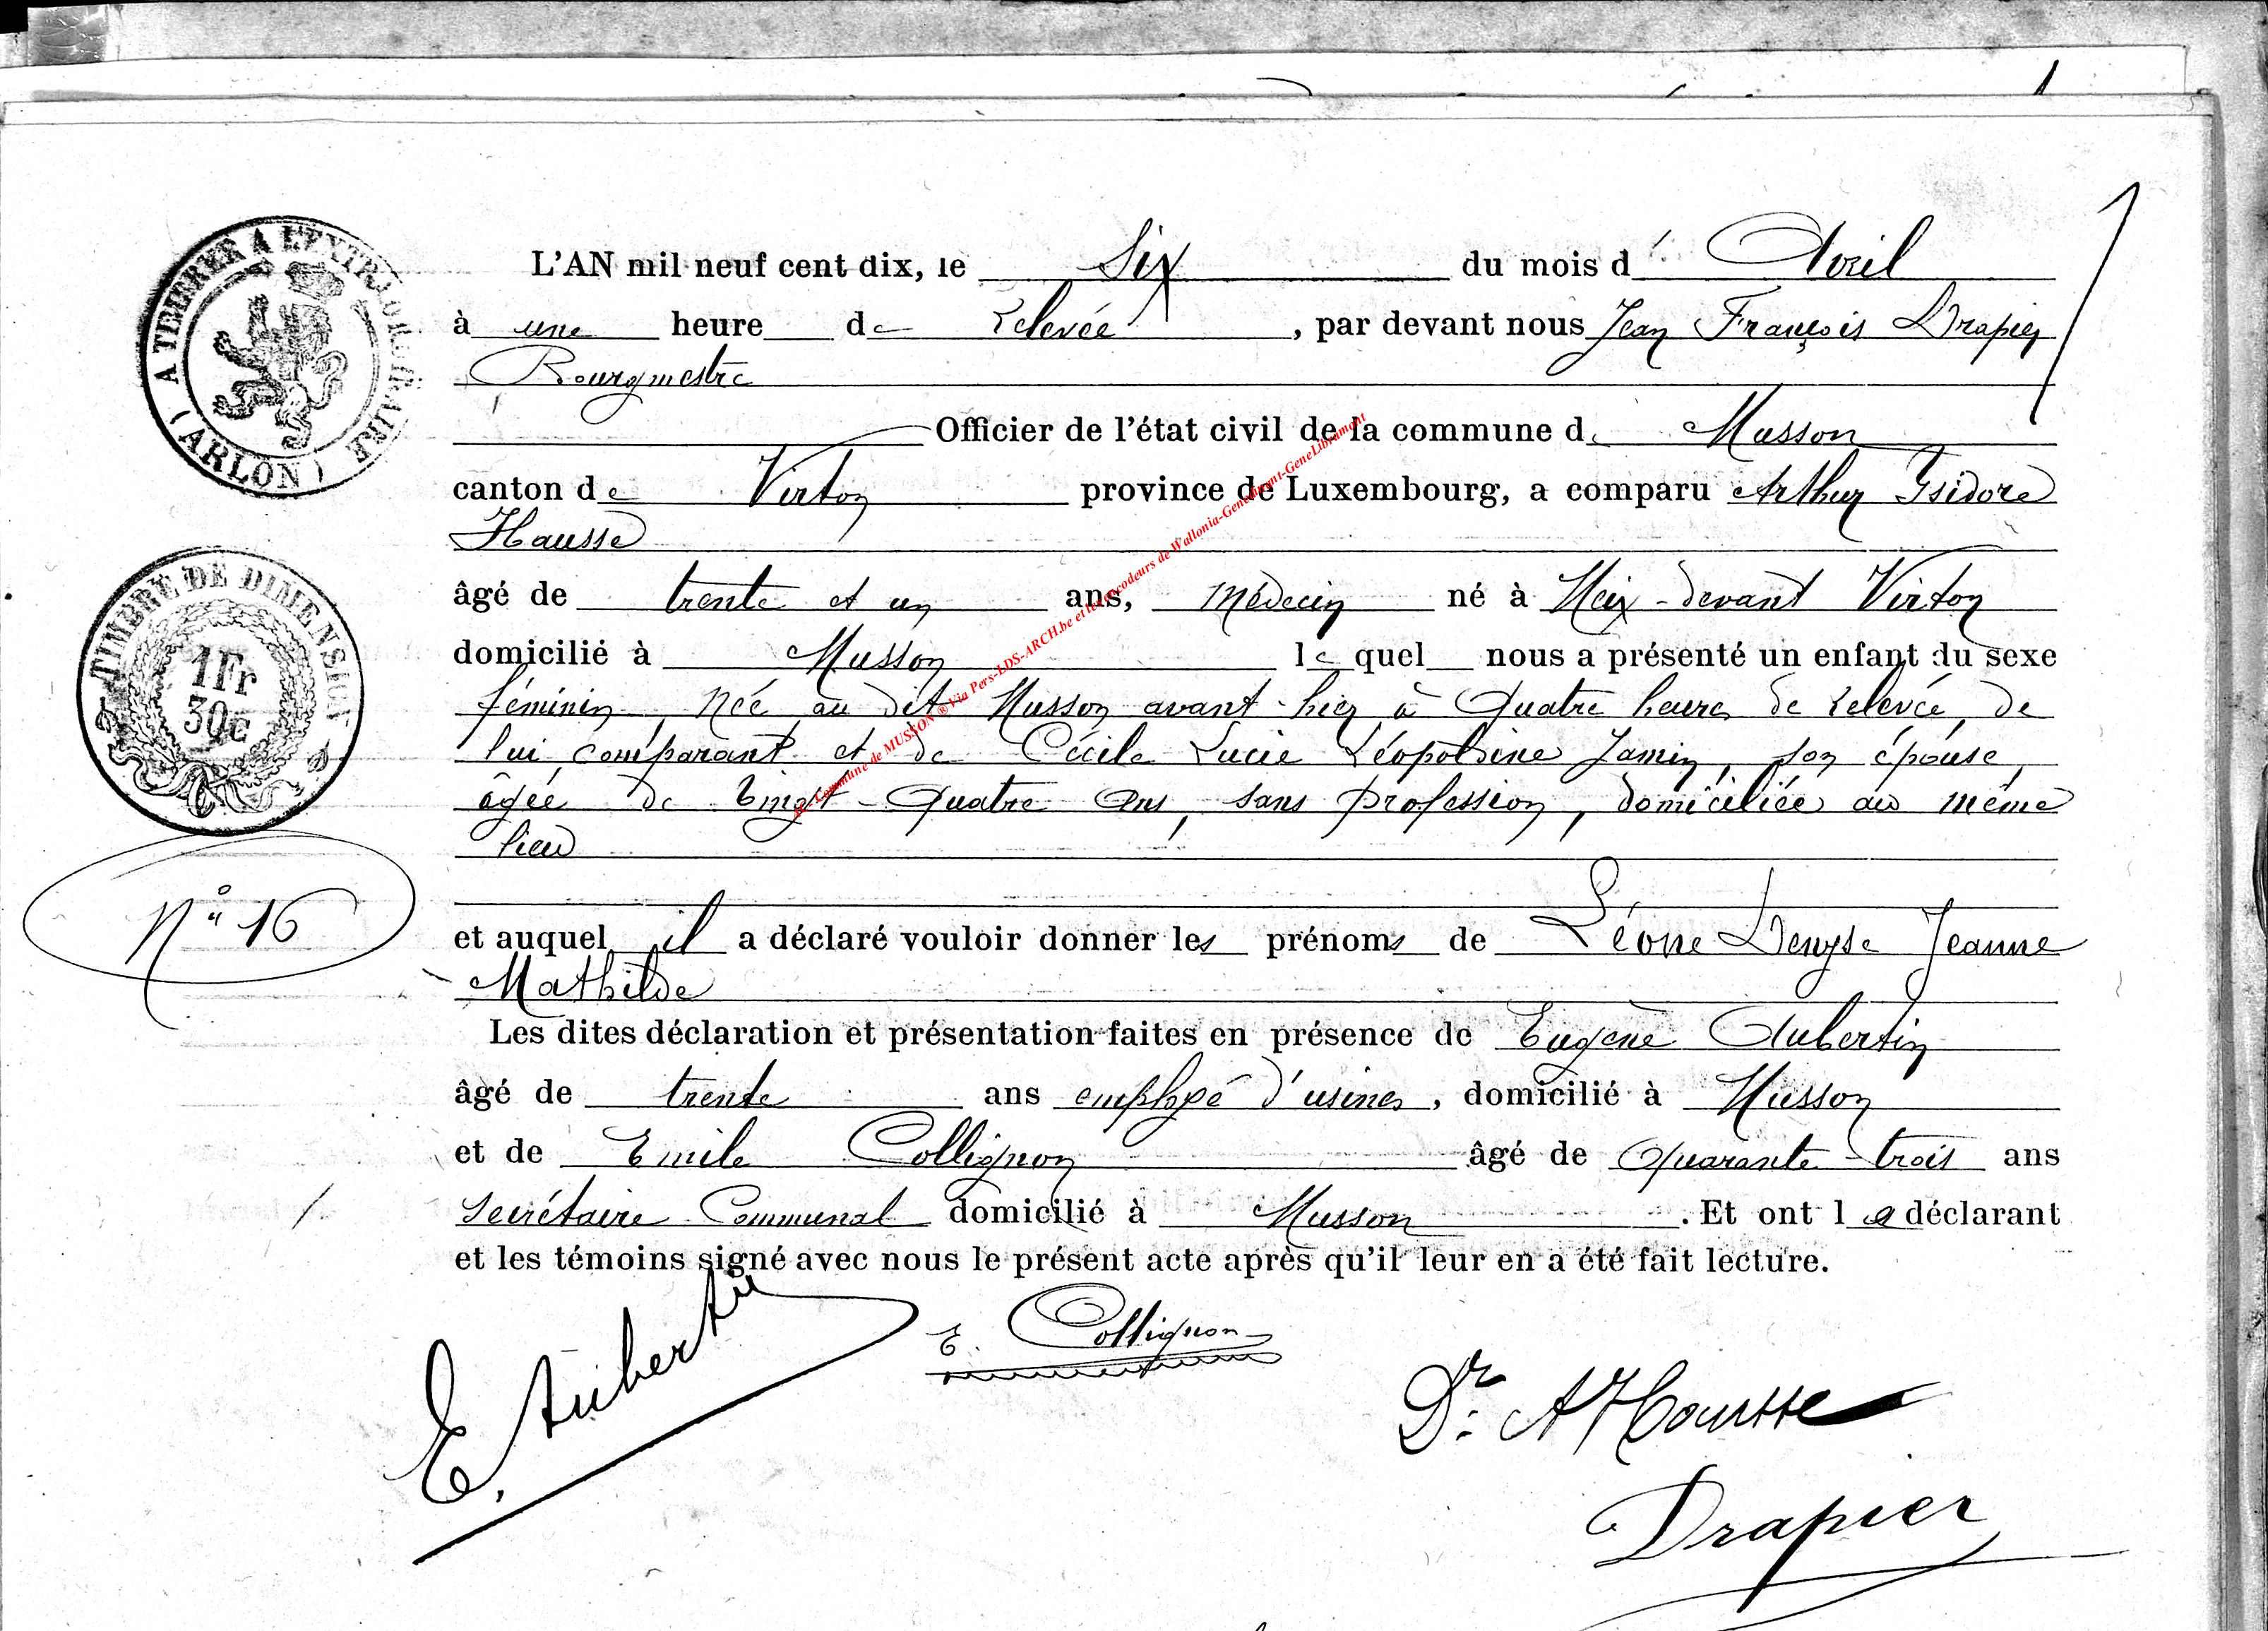 L'AN mil neuf cent dix, le Six du mois d'Avril
à une heure de relevée, par devant nous Jean François Drapier
Bourgmestre
Officier de l'état civil de la commune de Musson
canton de Virton province de Luxembourg, a comparu Arthur Isidore
Hausse
âgé de trente et un ans, médecin né à Meix-devant Virton
domicilié à Musson le quel nous a présenté un enfant du sexe
féminin, née au dit Musson avant-hier à quatre heures de relevée, de
lui comparant et de Cécile Lucie Léopoldine Jamin, son épouse,
âgée de vingt-quatre ans, sans profession, domiciliée au même
lieu
et auquel il a déclaré vouloir donner les prénoms de Léone Denyse Jeanne
Mathilde
Les dites déclaration et présentation faites en présence de Eugène Aubertin
âgé de trente ans employé d'usines, domicilié à Musson
et de Emile Collignon âgé de quarante-trois ans
secrétaire communal domicilié à Musson. Et ont le déclarant
et les témoins signé avec nous le présent acte après qu'il leur en a été fait lecture.
E. Aubertin
E. Collignon
Dr. A Hausse
Drapier
A TIMBRER A L'EXTRAORDINAIRE
(ARLON)
TIMBRE DE DIMENSION
1Fr
30c
N° 16
Commune de MUSSON ® Via Pers-LDS-ARCH.be et les encodeurs de Wallonia-Genealment-GeneLibramont